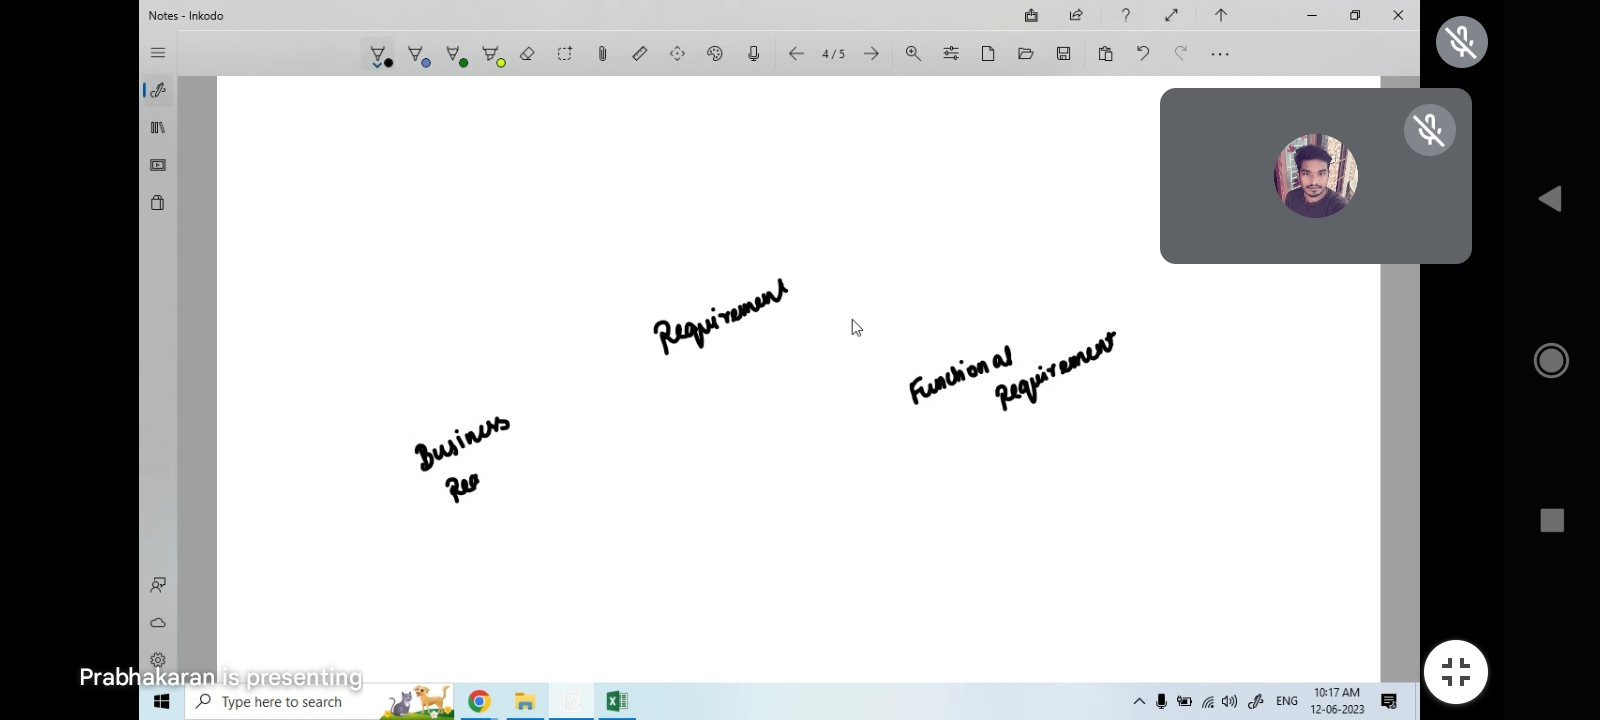 Notes - Inkodo
4 / 5
Requirement
Functional
Requirement
Business
Req
Prabhakaran is presenting
Type here to search
ENG
10:17 AM
12-06-2023